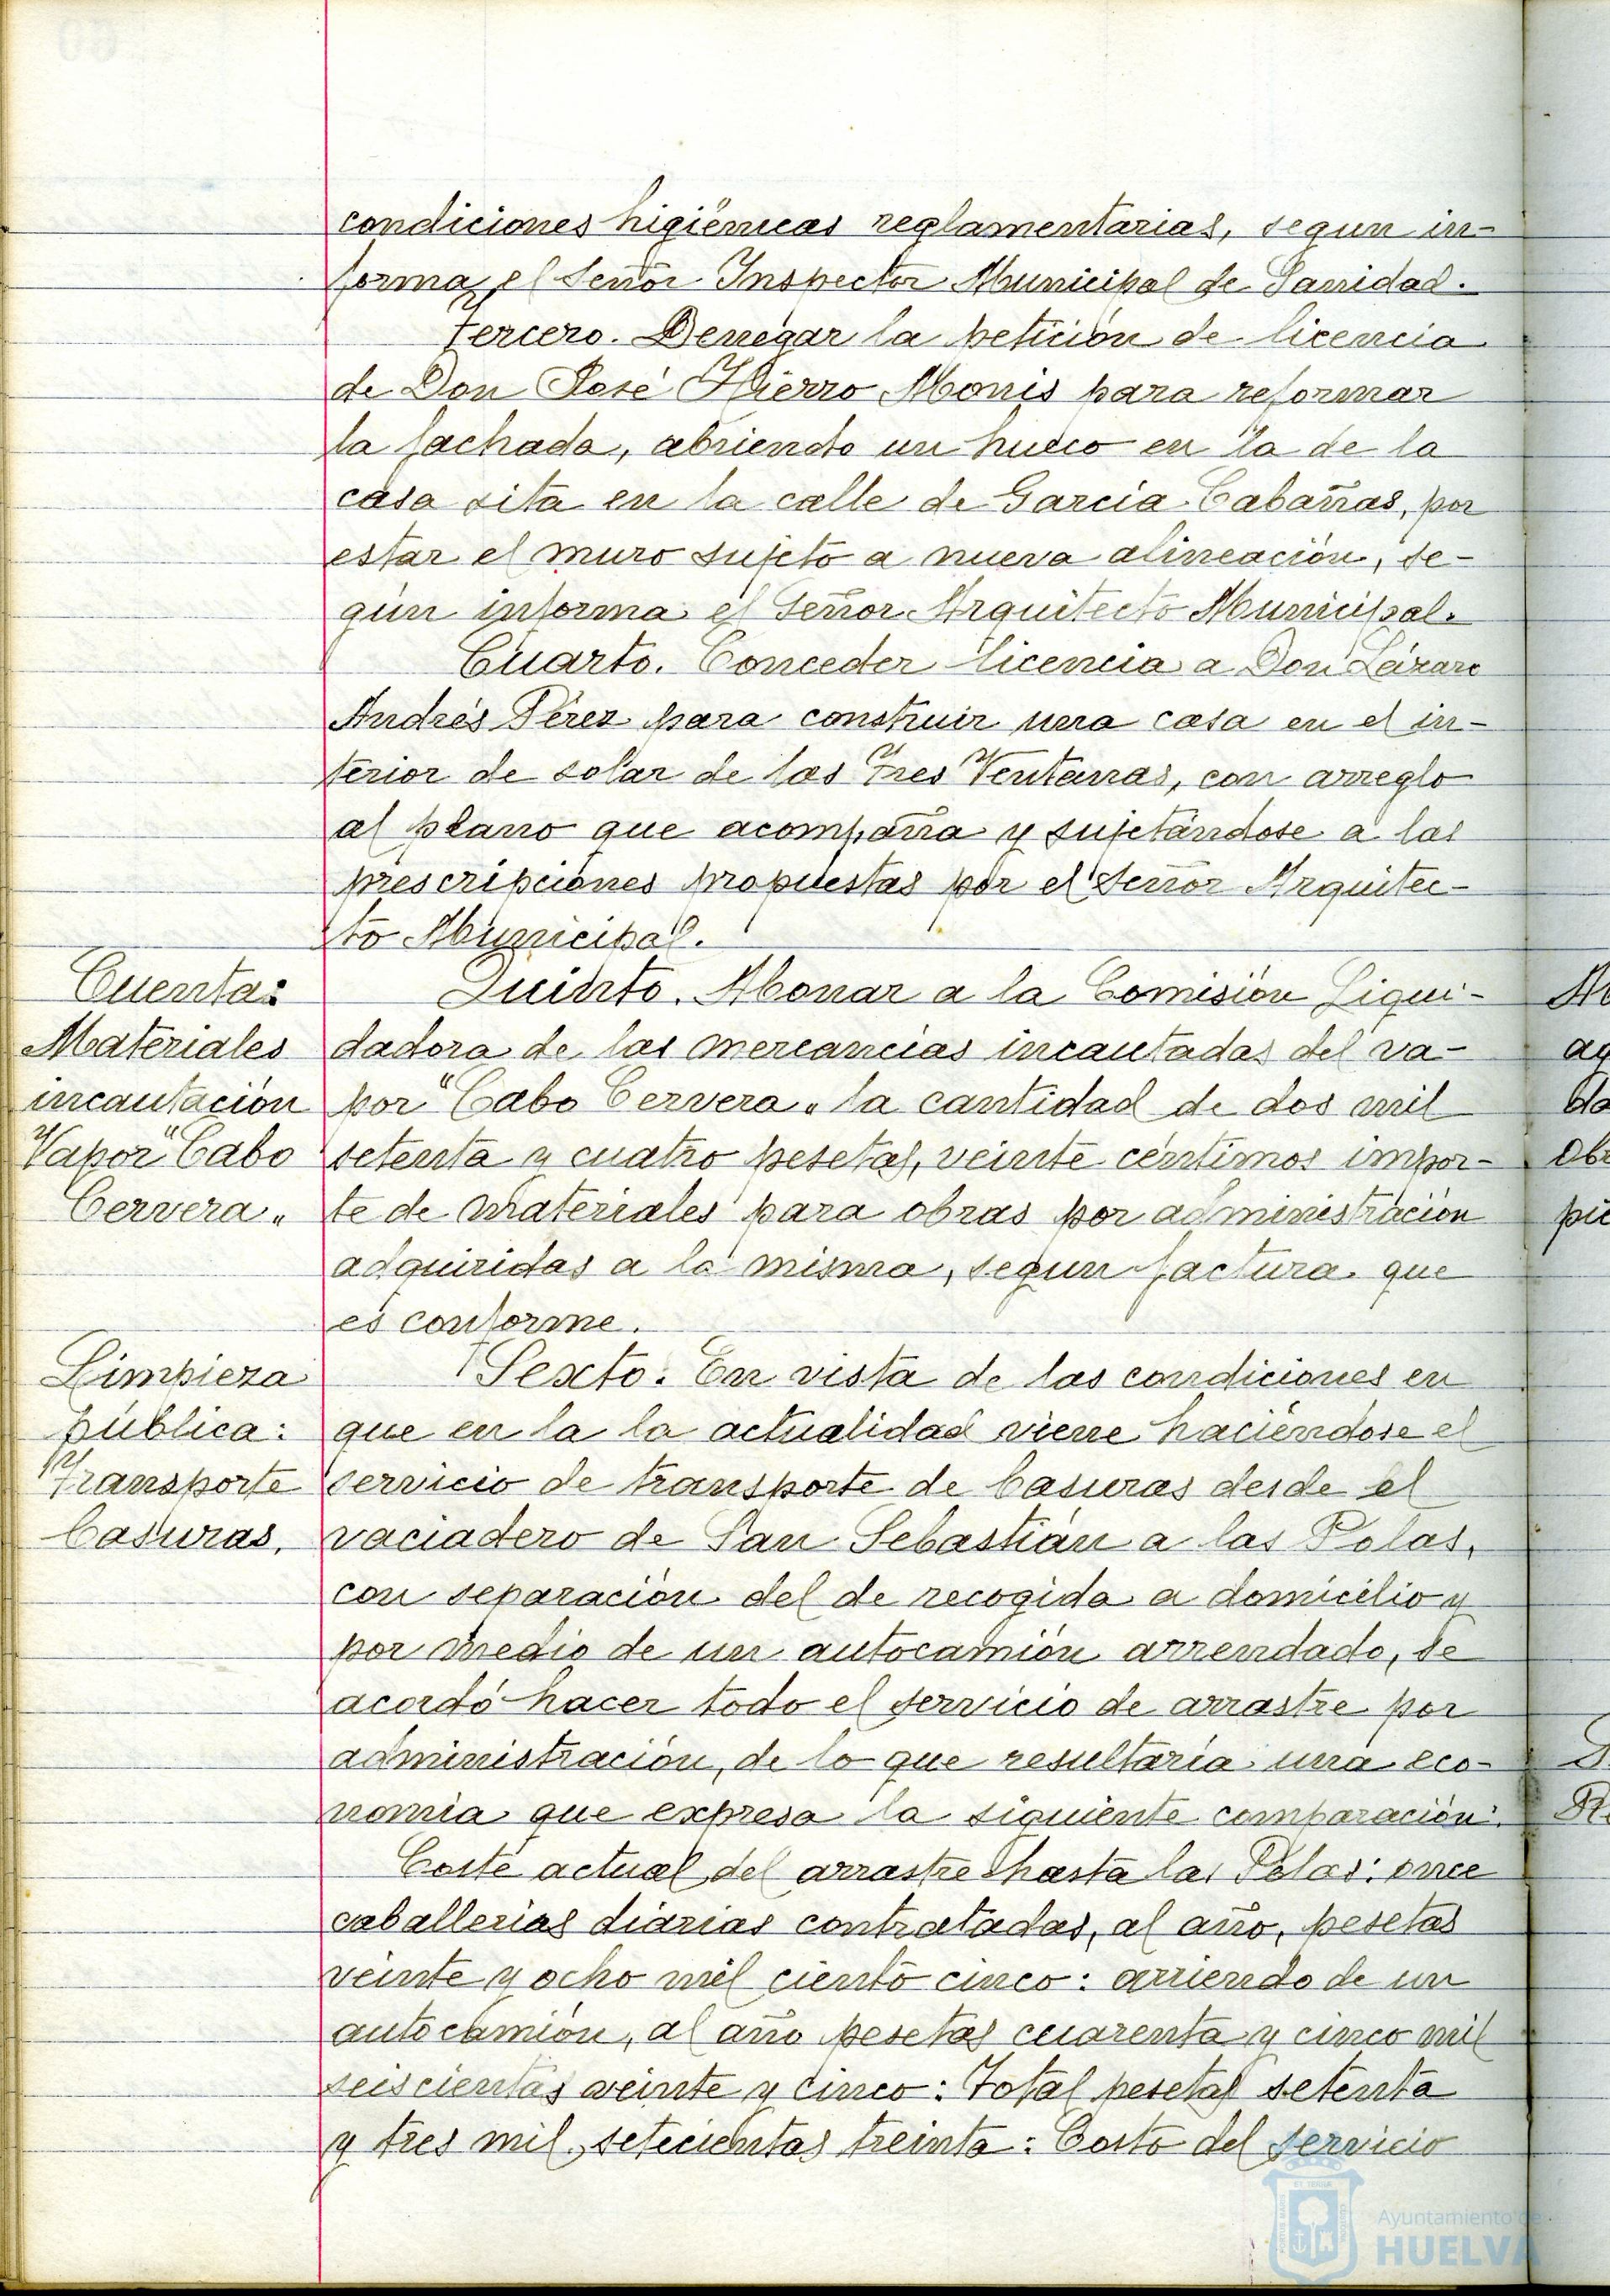 condiciones higiénicas reglamentarias, segun in-
forma el Señor Inspector Municipal de Sanidad.
Tercero. Denegar la petición de licencia
de Don José Hierro Monis para reformar
la fachada, abriendo un hueco en la de la
casa sita en la calle de Garcia Cabañas, por
estar el muro sujeto a nueva alineación, se-
gún informa el Señor Arquitecto Municipal.
Cuarto. Conceder licencia a Don Lázaro
Andrés Pérez para construir una casa en el in-
terior de solar de las Tres Ventanas, con arreglo
al plano que acompaña y sujetándose a las
prescripciones propuestas por el Señor Arquitec-
to Municipal.
Cuentas
Materiales
incautación
Vapor "Cabo
Cervera"
Quinto. Abonar a la Comisión Liqui-
dadora de las mercancias incautadas del va-
por "Cabo Cervera" la cantidad de dos mil
setenta y cuatro pesetas, veinte céntimos impor-
te de materiales para obras por administración
adquiridas a la misma, segun factura que
es conforme.
Limpieza
pública:
Transporte
basuras.
Sexto: En vista de las condiciones en
que en la la actualidad viene haciéndose el
servicio de transporte de basuras desde el
vaciadero de San Sebastián a las Polas,
con separación del de recogida a domicilio y
por medio de un autocamión arrendado, se
acordó hacer todo el servicio de arrastre por
administración, de lo que resultaria una eco-
nomia que expresa la siguiente comparación:
Coste actual del arrastre hasta las Polas: once
caballerias diarias contratadas, al año, pesetas
veinte y ocho mil ciento cinco: arriendo de un
autocamión, al año pesetas cuarenta y cinco mil
seiscientas veinte y cinco: Total pesetas setenta
y tres mil, setecientas treinta: Costo del servicio
Ayuntamiento de
HUELVA